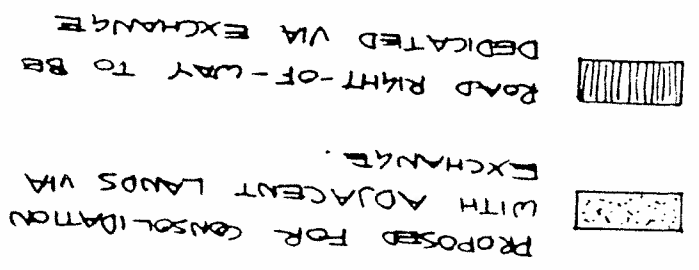 PROPOSED FOR CONSOLIDATION
WITH ADJACENT LANDS VIA
EXCHANGE.
ROAD RIGHT-OF-WAY TO BE
DEDICATED VIA EXCHANGE